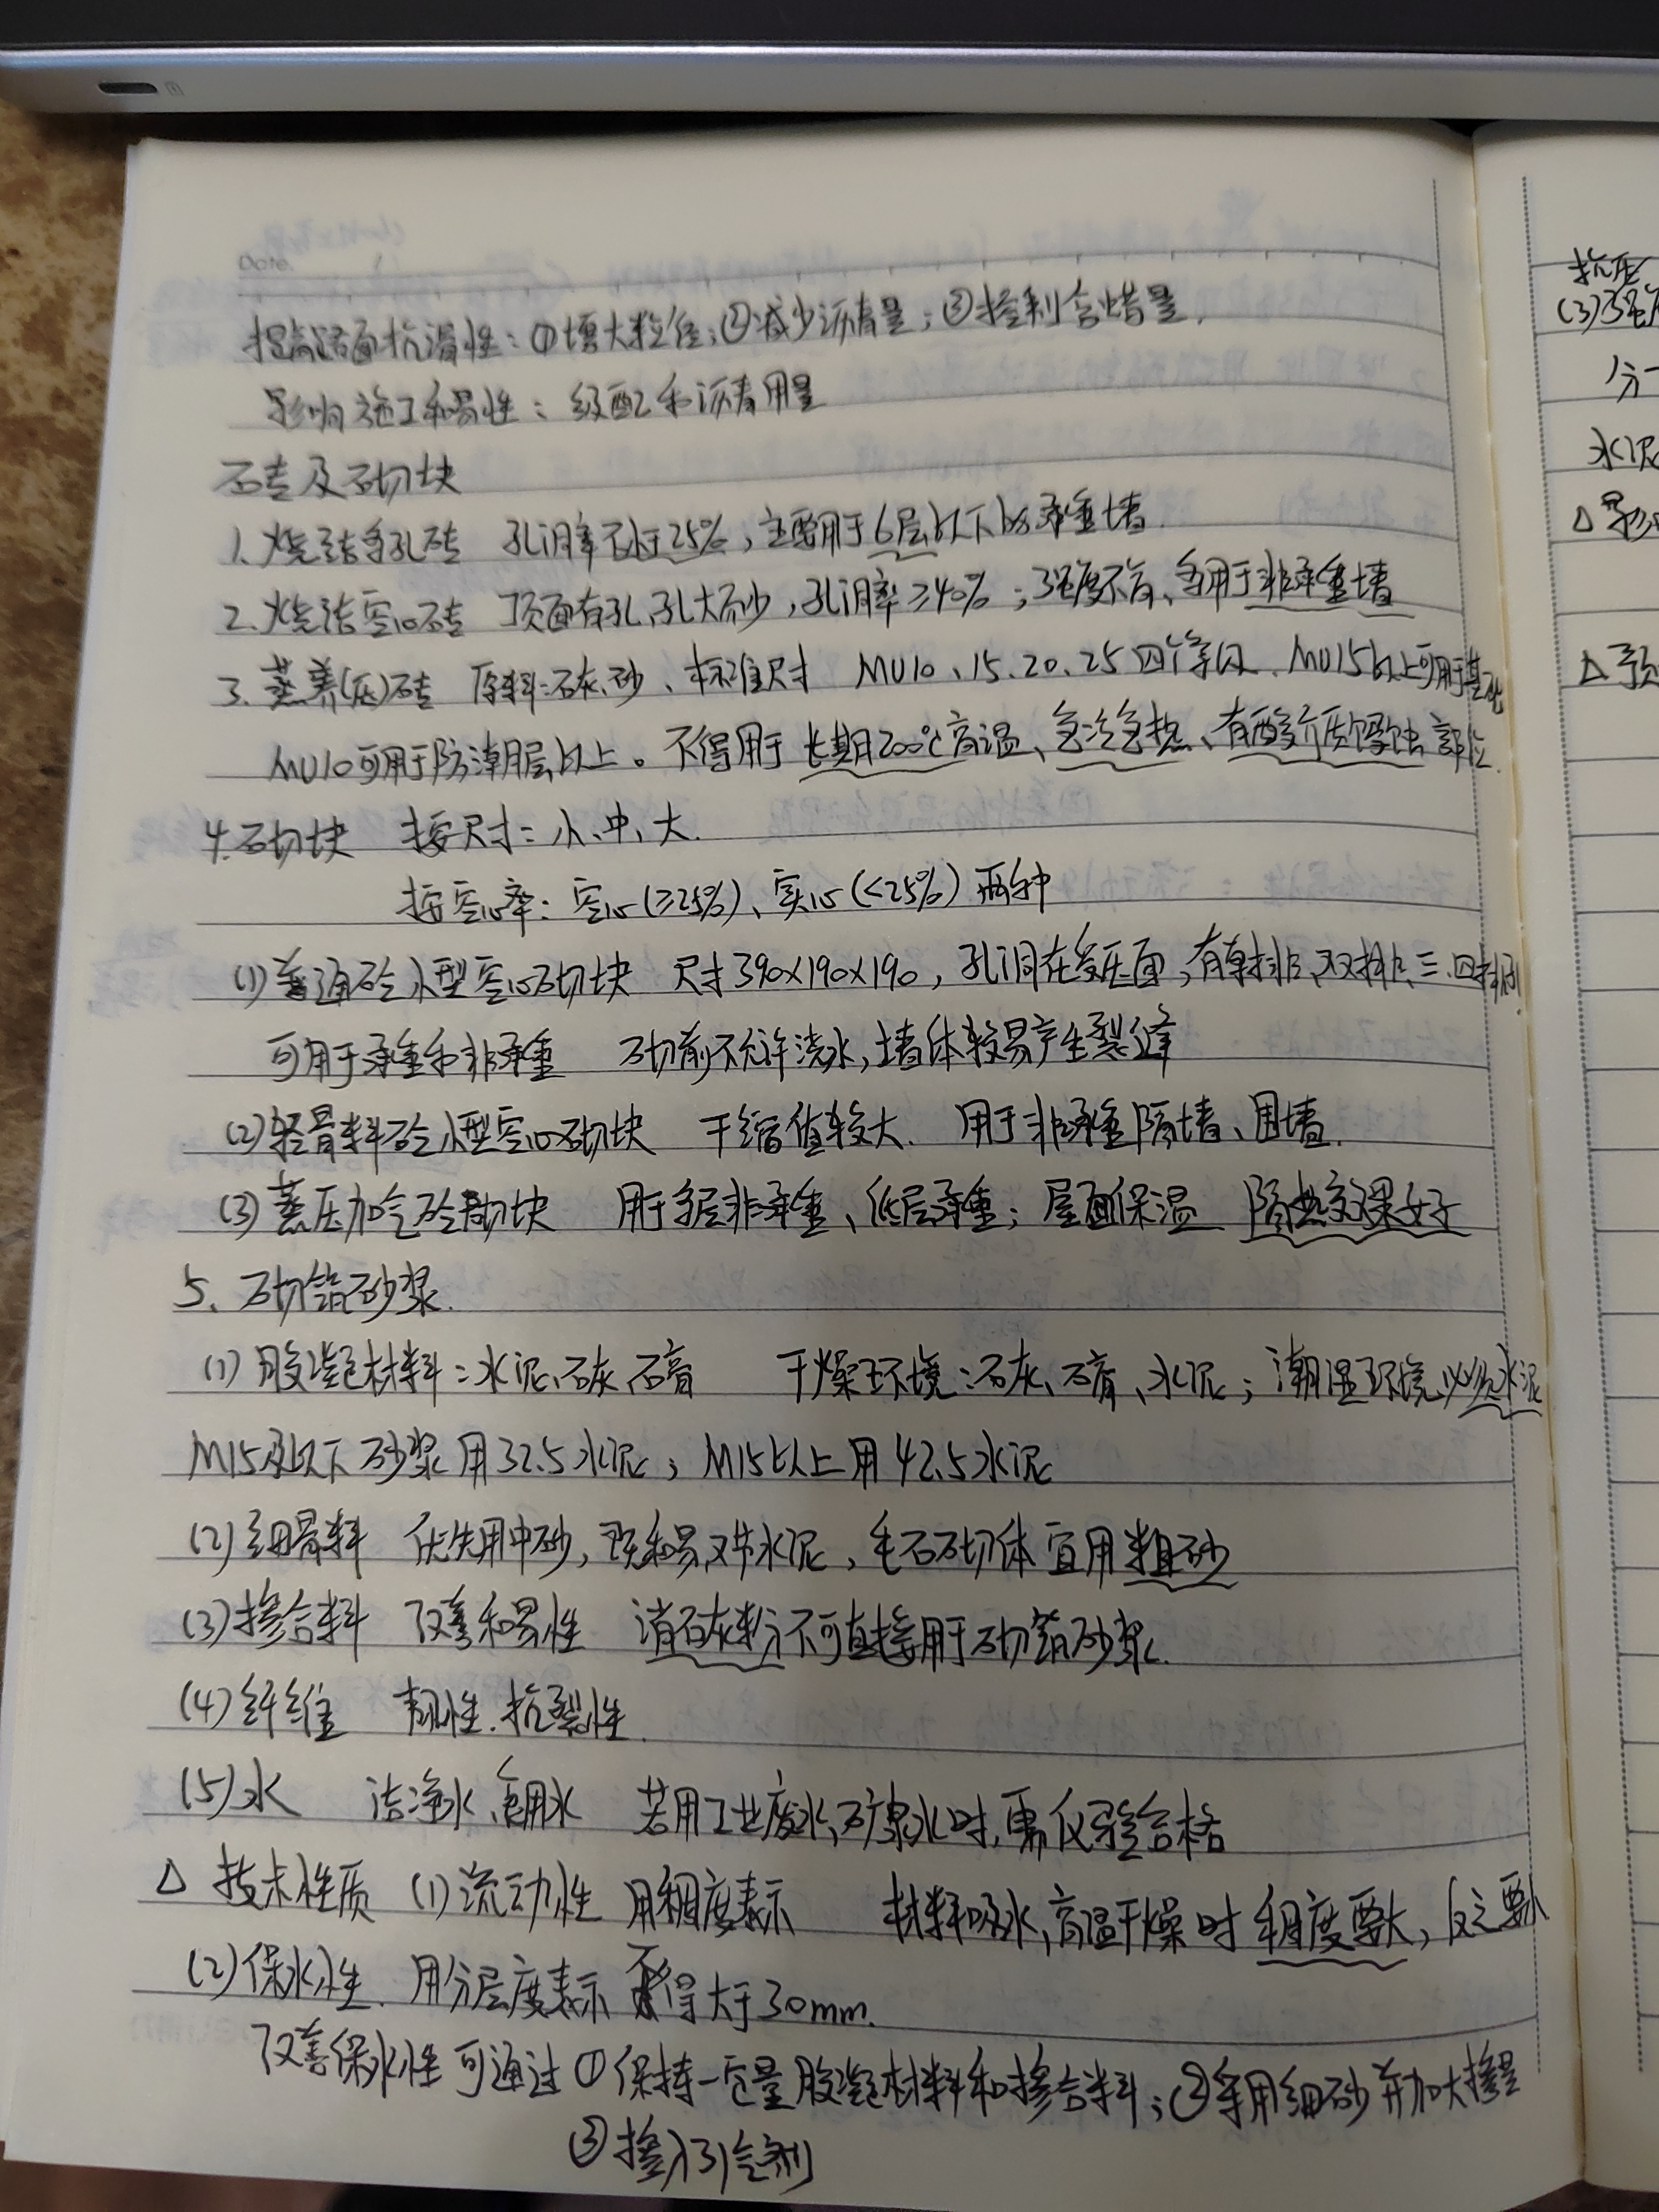 Date.
提高路面抗滑性：①增大粒径；②减少沥青量；③控制含蜡量.
影响施工和易性：级配和沥青用量
砖及砌块
1. 烧结多孔砖 孔洞率不小于25%，主要用于6层以下的承重墙.
2. 烧结空心砖 顶面有孔,孔大而少，孔洞率≥40%；强度不高、多用于非承重墙
3. 蒸养(压)砖 原料:石灰、砂、标准尺寸 MU10、15.20.25四个等级. MU15以上可用于基础
MU10可用于防潮层以上。不得用于长期200℃高温、急冷急热、有酸介质侵蚀部位.
4.砌块 按尺寸：小、中、大.
按空心率：空心(≥25%)、实心(<25%)两种
(1)普通砼小型空心砌块 尺寸390×190×190，孔洞在受压面；有单排、双排、三.四排孔
可用于承重和非承重 砌前不允许浇水,墙体较易产生裂缝
(2)轻骨料砼小型空心砌块 干缩值较大. 用于非承重隔墙、围墙.
(3)蒸压加气砼砌块 用于多层非承重、低层承重；屋面保温 隔热效果好
5、砌筑砂浆.
(1)胶凝材料：水泥、石灰、石膏 干燥环境：石灰、石膏、水泥；潮湿环境必须水泥
M15及以下砂浆用32.5水泥；M15以上用42.5水泥
(2)细骨料 优先用中砂，既和易又节水泥，毛石砌体宜用粗砂
(3)掺合料 改善和易性 消石灰粉不可直接用于砌筑砂浆.
(4)纤维 韧性.抗裂性.
(5)水 洁净水、饮用水 若用工业废水,矿泉水时,需化验合格
△ 技术性质 (1)流动性 用稠度表示 材料吸水,高温干燥时稠度要大，反之要小
(2)保水性. 用分层度表示 不得大于30mm.
改善保水性可通过①保持一定量胶凝材料和掺合料；②采用细砂并加大掺量
③掺入引气剂
抗压
(3)强
分一
水泥
△影响
△预